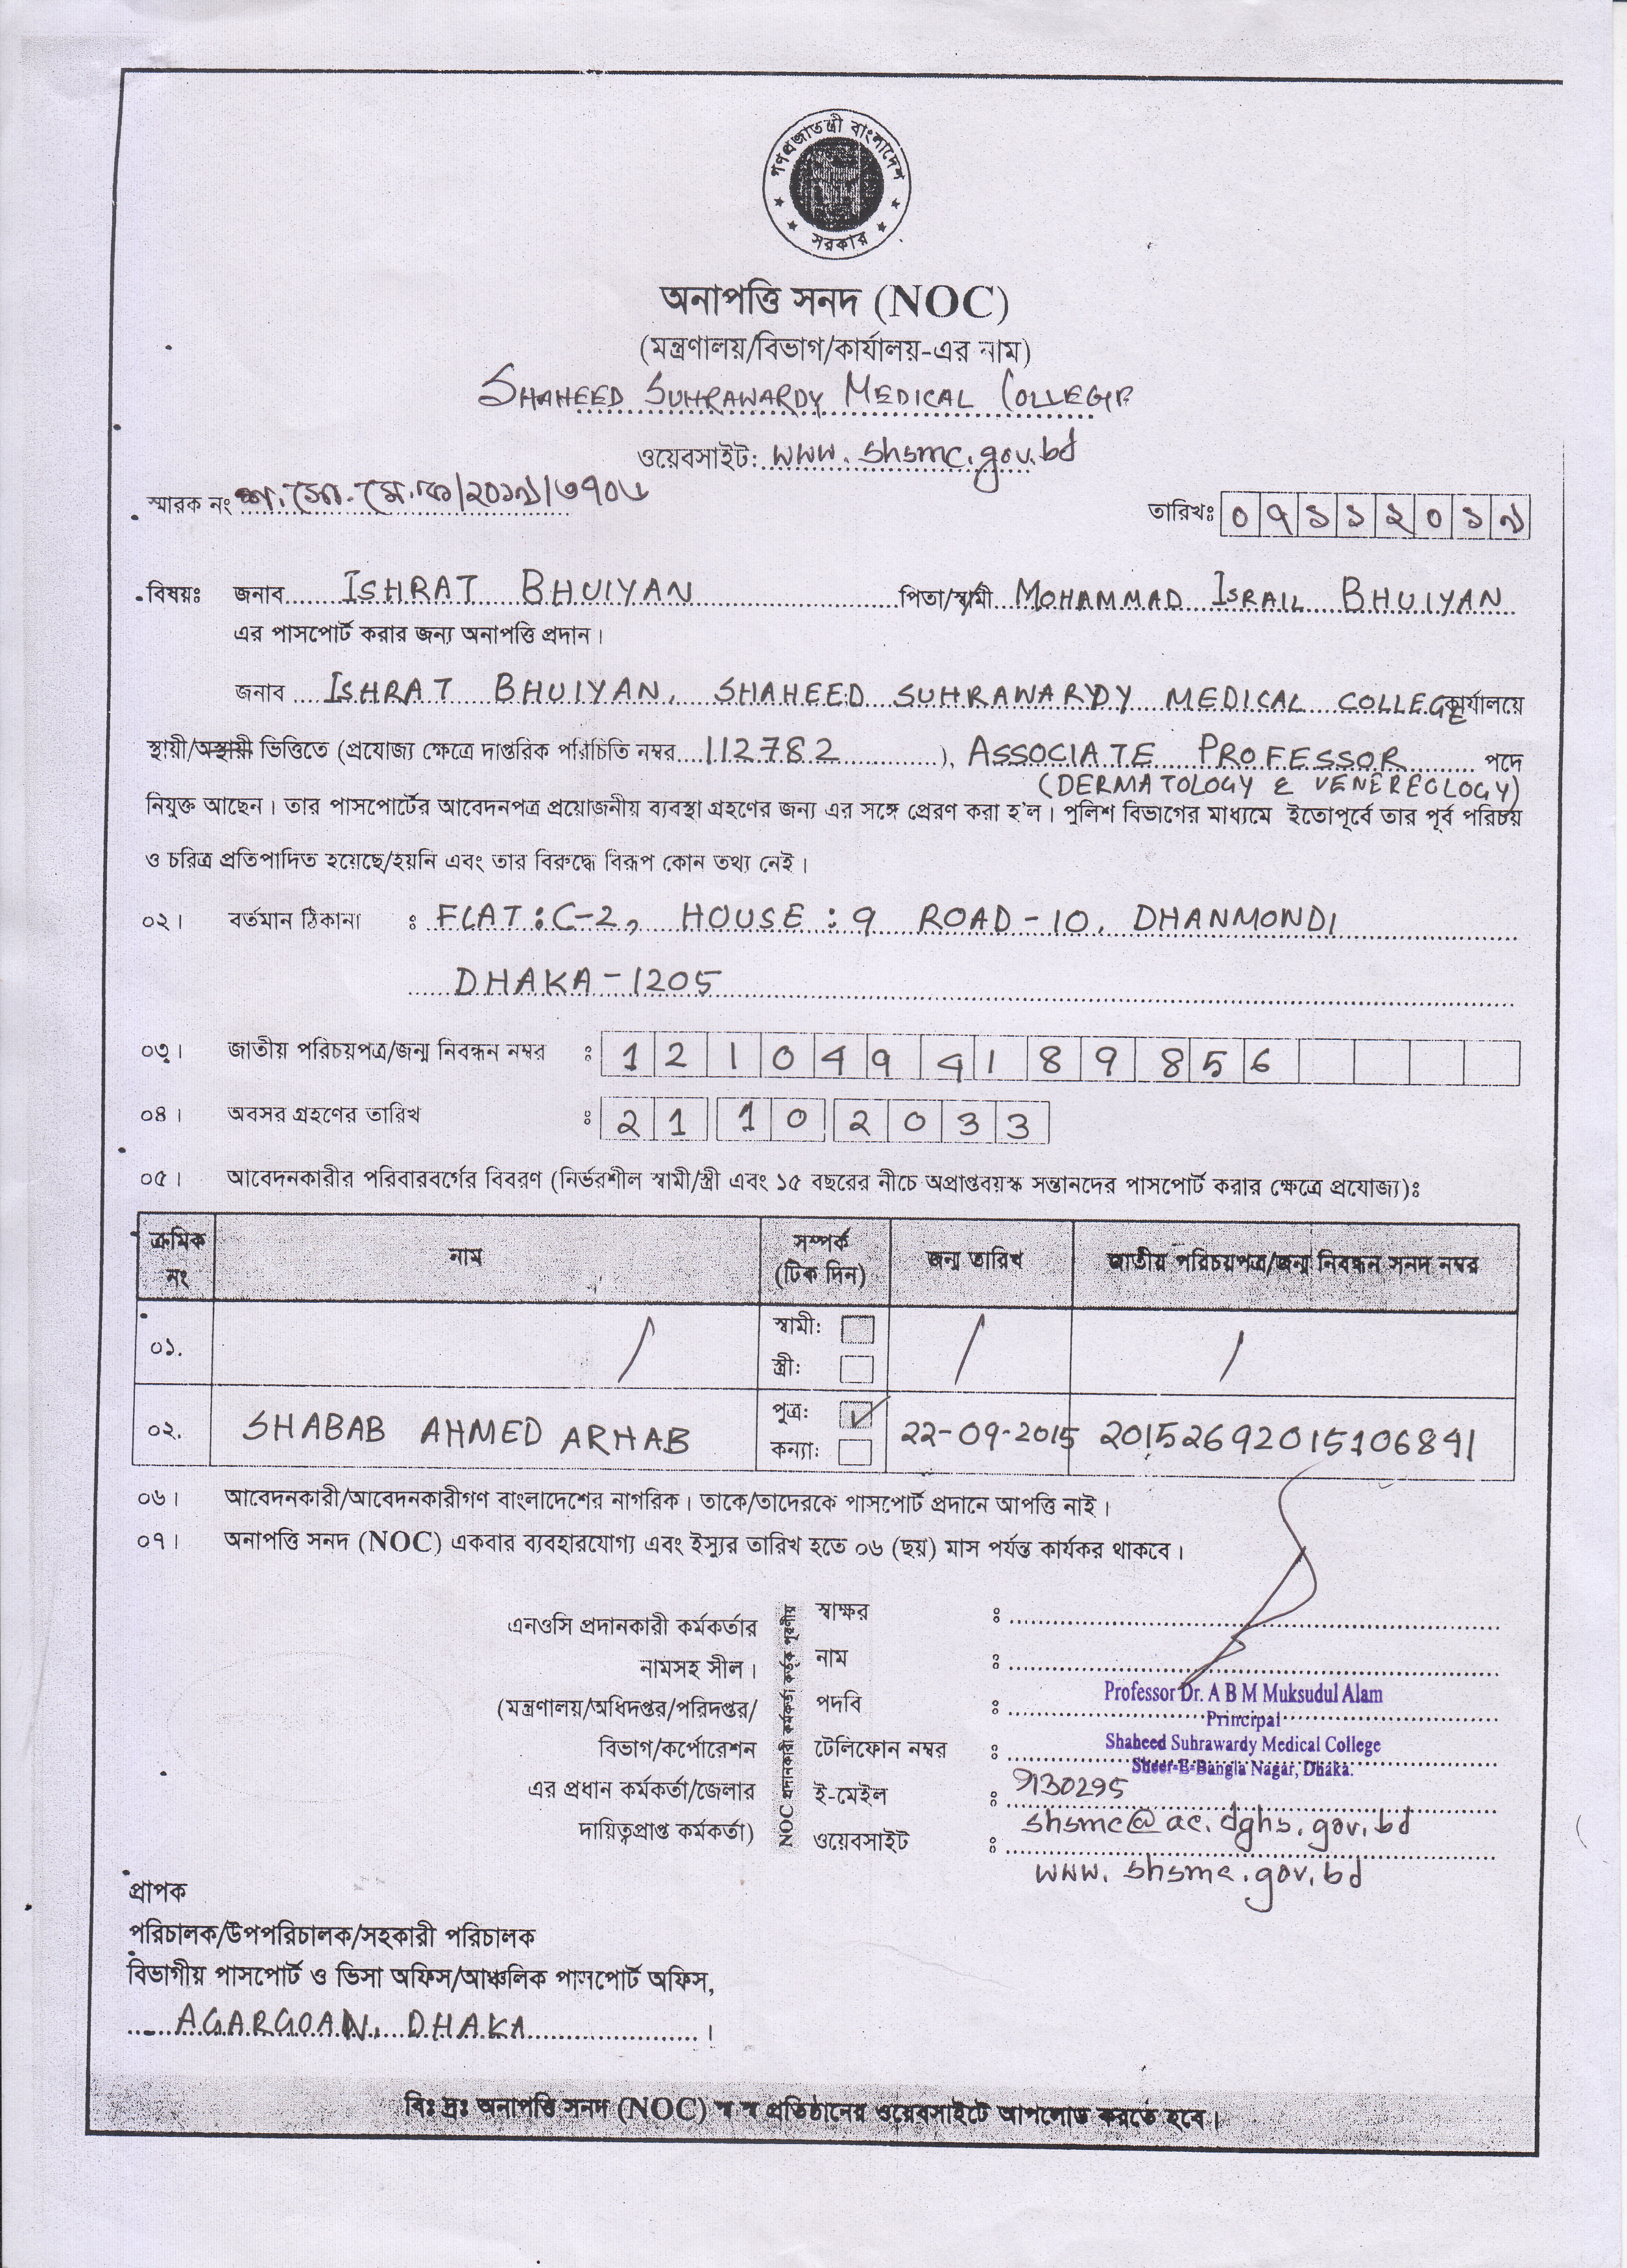 গণপ্রজাতন্ত্রী বাংলাদেশ
সরকার
অনাপত্তি সনদ (NOC)
(মন্ত্রণালয়/বিভাগ/কার্যালয়-এর নাম)
SHAHEED SUHRAWARDY MEDICAL COLLEGE
ওয়েবসাইট: www.shsmc.gov.bd
স্মারক নং শ.সো.মে.ক/২০১৯/৩৭০৬ তারিখঃ ০৭১১২০১৯
বিষয়ঃ জনাব ISHRAT BHUIYAN পিতা/স্বামী MOHAMMAD ISRAIL BHUIYAN
এর পাসপোর্ট করার জন্য অনাপত্তি প্রদান।
জনাব ISHRAT BHUIYAN, SHAHEED SUHRAWARDY MEDICAL COLLEGE কার্যালয়ে
স্থায়ী/অস্থায়ী ভিত্তিতে (প্রযোজ্য ক্ষেত্রে দাপ্তরিক পরিচিতি নম্বর 112782 ), ASSOCIATE PROFESSOR পদে
(DERMATOLOGY & VENEREOLOGY)
নিযুক্ত আছেন। তার পাসপোর্টের আবেদনপত্র প্রয়োজনীয় ব্যবস্থা গ্রহণের জন্য এর সঙ্গে প্রেরণ করা হ'ল। পুলিশ বিভাগের মাধ্যমে ইতোপূর্বে তার পূর্ব পরিচয়
ও চরিত্র প্রতিপাদিত হয়েছে/হয়নি এবং তার বিরুদ্ধে বিরূপ কোন তথ্য নেই।
০২। বর্তমান ঠিকানা : FLAT: C-2, HOUSE : 9 ROAD-10, DHANMONDI
DHAKA-1205
০৩। জাতীয় পরিচয়পত্র/জন্ম নিবন্ধন নম্বর : 1210494189856
০৪। অবসর গ্রহণের তারিখ : 21 10 2033
০৫। আবেদনকারীর পরিবারবর্গের বিবরণ (নির্ভরশীল স্বামী/স্ত্রী এবং ১৫ বছরের নীচে অপ্রাপ্তবয়স্ক সন্তানদের পাসপোর্ট করার ক্ষেত্রে প্রযোজ্য)ঃ
ক্রমিক নং নাম সম্পর্ক (টিক দিন) জন্ম তারিখ জাতীয় পরিচয়পত্র/জন্ম নিবন্ধন সনদ নম্বর
০১. / স্বামী: / /
স্ত্রী:
০২. SHABAB AHMED ARHAB পুত্র: ✓ 22-09-2015 20152692015106841
কন্যা:
০৬। আবেদনকারী/আবেদনকারীগণ বাংলাদেশের নাগরিক। তাকে/তাদেরকে পাসপোর্ট প্রদানে আপত্তি নাই।
০৭। অনাপত্তি সনদ (NOC) একবার ব্যবহারযোগ্য এবং ইস্যুর তারিখ হতে ০৬ (ছয়) মাস পর্যন্ত কার্যকর থাকবে।
এনওসি প্রদানকারী কর্মকর্তার
নামসহ সীল।
(মন্ত্রণালয়/অধিদপ্তর/পরিদপ্তর/
বিভাগ/কর্পোরেশন
এর প্রধান কর্মকর্তা/জেলার
দায়িত্বপ্রাপ্ত কর্মকর্তা)
NOC প্রদানকারী কর্মকর্তা কর্তৃক পূরণীয়
স্বাক্ষর :
নাম :
পদবি :
টেলিফোন নম্বর :
ই-মেইল :
ওয়েবসাইট :
Professor Dr. A B M Muksudul Alam
Principal
Shaheed Suhrawardy Medical College
Sheer-E-Bangla Nagar, Dhaka.
9130295
shsmc@ac.dghs.gov.bd
www.shsmc.gov.bd
প্রাপক
পরিচালক/উপপরিচালক/সহকারী পরিচালক
বিভাগীয় পাসপোর্ট ও ভিসা অফিস/আঞ্চলিক পাসপোর্ট অফিস,
AGARGOAN, DHAKA।
বিঃ দ্রঃ অনাপত্তি সনদ (NOC) স্ব স্ব প্রতিষ্ঠানের ওয়েবসাইটে আপলোড করতে হবে।